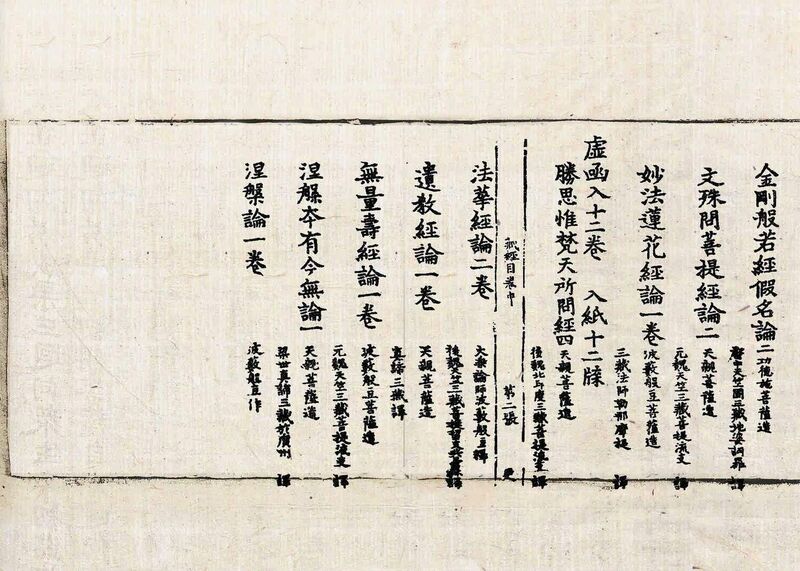 金剛般若經假名論二 功德施菩薩造
唐中天竺國三藏地婆訶羅 譯
文殊問菩提經論二 天親菩薩造
元魏天竺三藏菩提流支 譯
妙法蓮花經論一卷 波藪般豆菩薩造
三藏法師勒那摩提 譯
虛函入十二卷 入紙十二牒
勝思惟梵天所問經四 天親菩薩造
後魏北 三藏菩提流支 譯
經目卷中 第二張
法華經論二卷 大乘論師波藪般豆釋
後魏天竺三藏菩提留支 譯
遺教經論一卷 天親菩薩造
真諦三藏譯
無量壽經論一卷 波藪般豆菩薩造
元魏天竺三藏菩提流支 譯
涅槃夲有今無論一 天親菩薩造
梁世真諦三藏於廣州 譯
涅槃論一卷 波藪般豆作